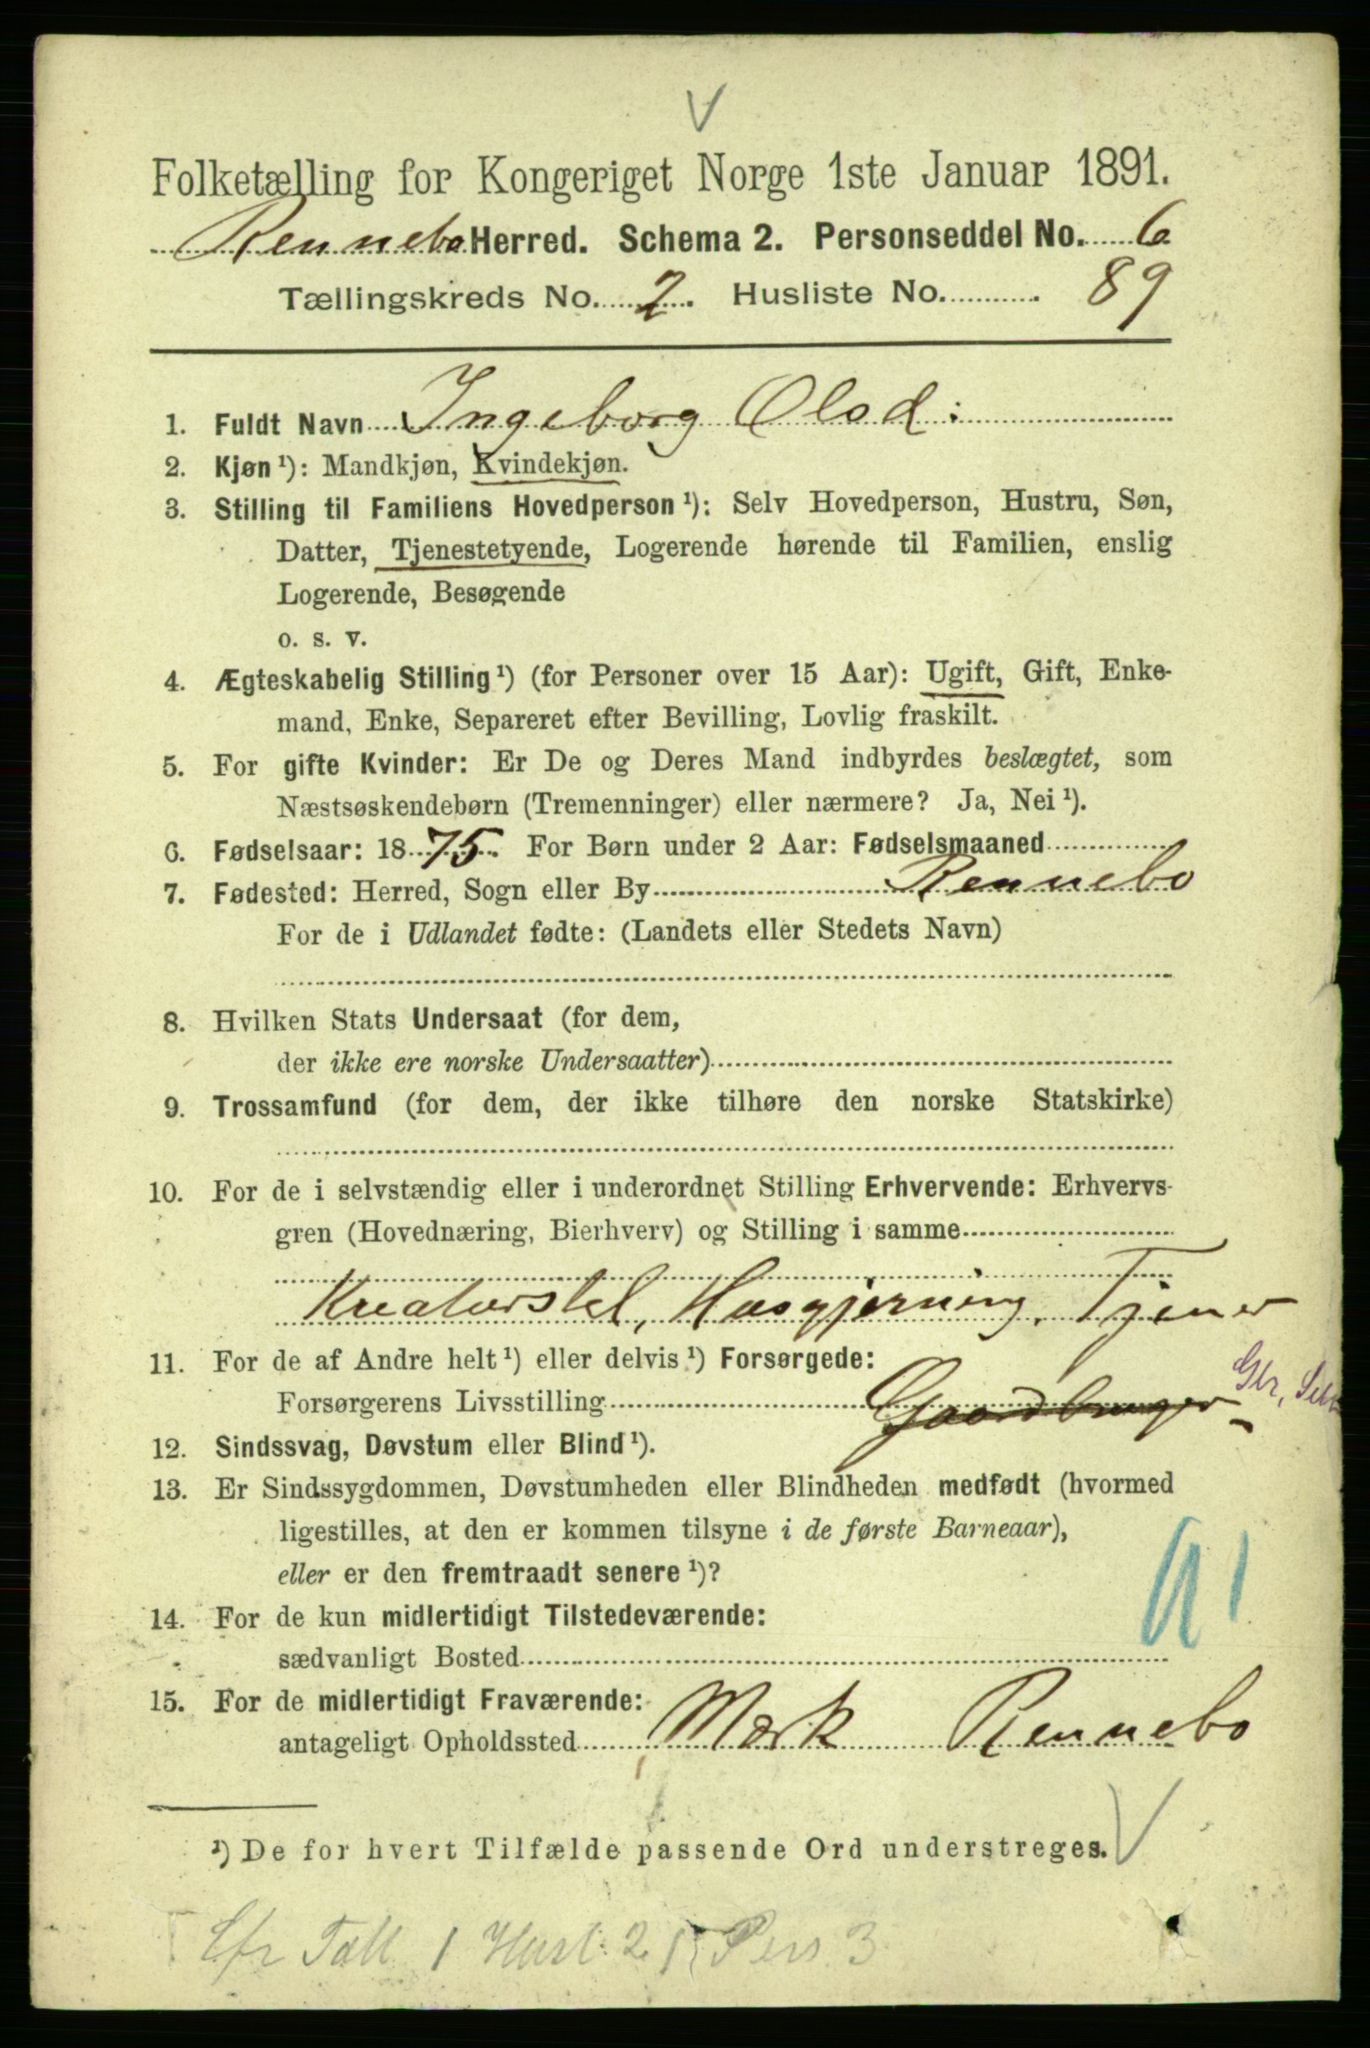 V
Folketælling for Kongeriget Norge 1ste Januar 1891.
Rennebo Herred. Schema 2. Personseddel No. 6
Tællingskreds No. 2. Husliste No. 89
1. Fuldt Navn Ingeborg Olsd:
2. Kjøn¹): Mandkjøn, Kvindekjøn.
3. Stilling til Familiens Hovedperson¹): Selv Hovedperson, Hustru, Søn,
Datter, Tjenestetyende, Logerende hørende til Familien, enslig
Logerende, Besøgende
o. s. v.
4. Ægteskabelig Stilling¹) (for Personer over 15 Aar): Ugift, Gift, Enke-
mand, Enke, Separeret efter Bevilling, Lovlig fraskilt.
5. For gifte Kvinder: Er De og Deres Mand indbyrdes beslægtet, som
Næstsøskendebørn (Tremenninger) eller nærmere? Ja, Nei¹).
6. Fødselsaar: 1875. For Børn under 2 Aar: Fødselsmaaned
7. Fødested: Herred, Sogn eller By Rennebo
For de i Udlandet fødte: (Landets eller Stedets Navn)
8. Hvilken Stats Undersaat (for dem,
der ikke ere norske Undersaatter)
9. Trossamfund (for dem, der ikke tilhøre den norske Statskirke)
10. For de i selvstændig eller i underordnet Stilling Erhvervende: Erhvervs-
gren (Hovednæring, Bierhverv) og Stilling i samme
Kreaturstel, Husgjerning. Tjener
11. For de af Andre helt¹) eller delvis¹) Forsørgede:
Forsørgerens Livsstilling Gaardbruger Gbr, Selv
12. Sindssvag, Døvstum eller Blind¹).
13. Er Sindssygdommen, Døvstumheden eller Blindheden medfødt (hvormed
ligestilles, at den er kommen tilsyne i de første Barneaar),
eller er den fremtraadt senere¹)?
14. For de kun midlertidigt Tilstedeværende:
sædvanligt Bosted
15. For de midlertidigt Fraværende:
antageligt Opholdssted Mærk Rennebo
¹) De for hvert Tilfælde passende Ord understreges. V
Cfr Tæll 1 Husl. 21, Pers. 3